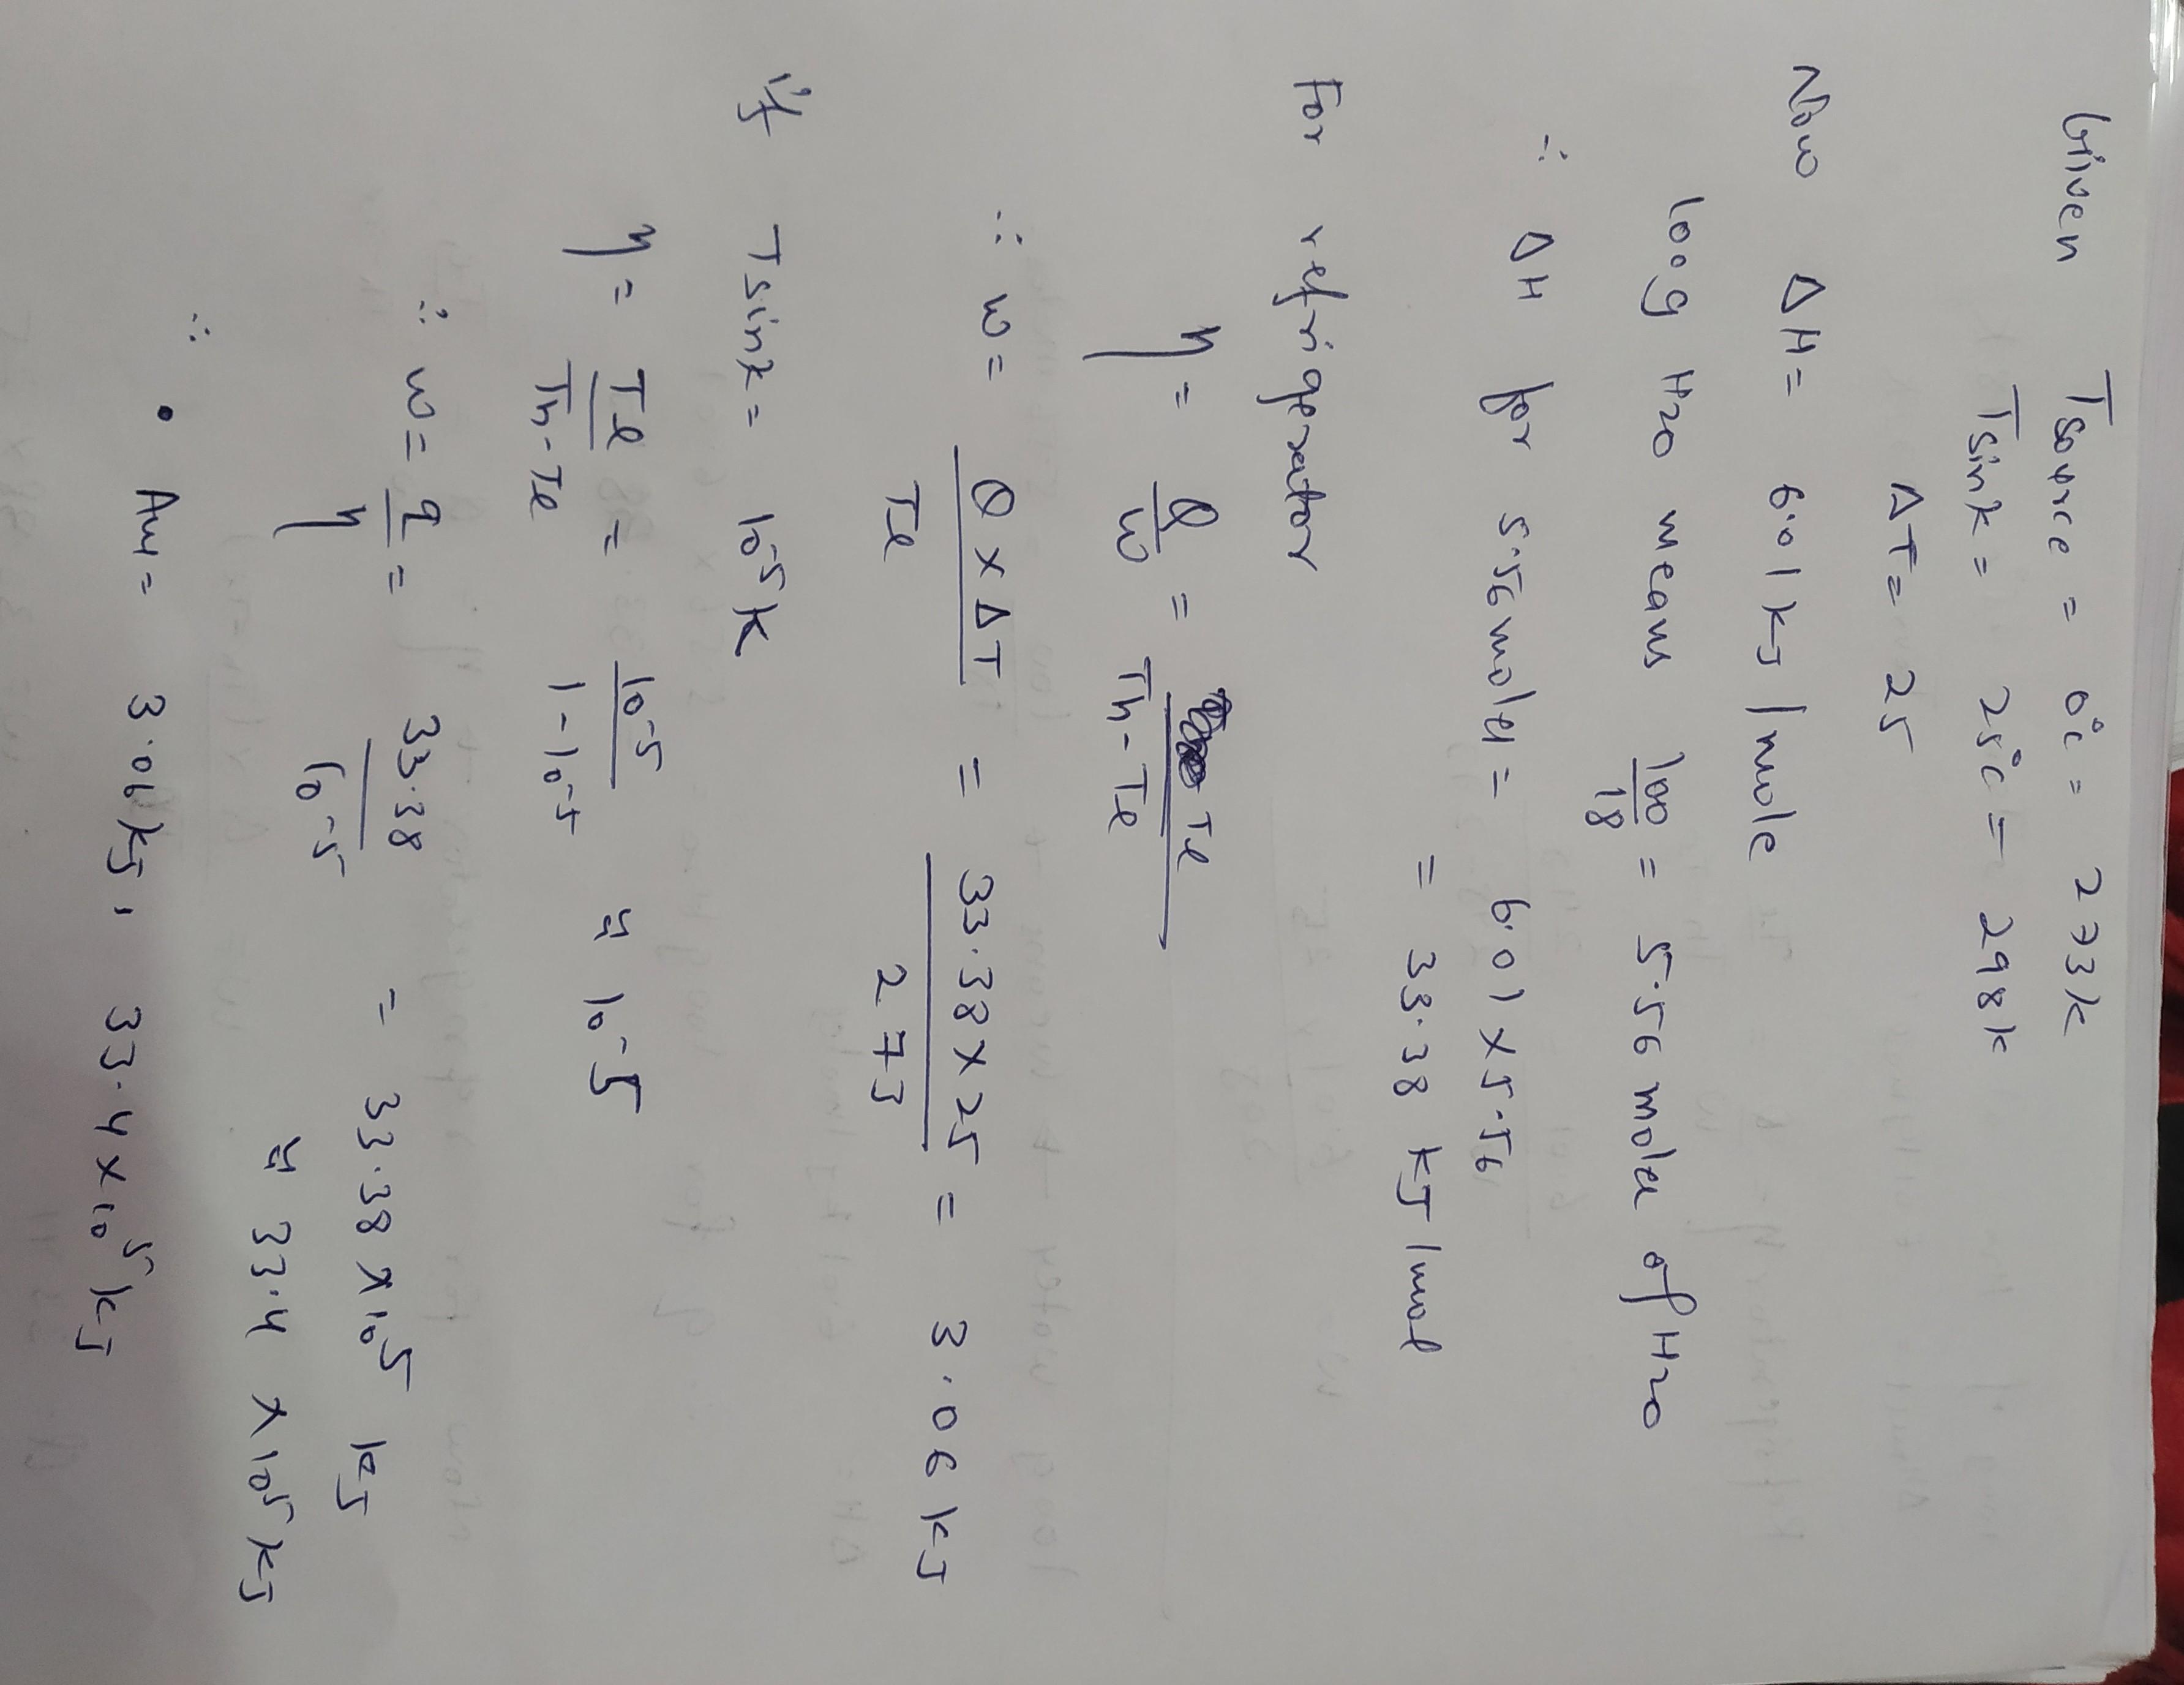 Given Tsource = 0°c = 273k
Tsink = 25°c = 298k
ΔT = 25
Now ΔH = 6.01 kJ/mole
100g H20 means 100/18 = 5.56 moles of H20
∴ ΔH for 5.56 moles = 6.01 × 5.56
= 33.38 kJ/mol
For refrigerator
η = Q/w = Tl/Th-Tl
∴ w = Q × ΔT/Tl = 33.38 × 25/273 = 3.06 kJ
if Tsink = 10-5 k
η = Tl/Th-Tl = 10-5/1-10-5 ≈ 10-5
∴ w = q/η = 33.38/10-5 = 33.38 × 10^5 kJ
≈ 33.4 × 10^5 kJ
∴ • Ans = 3.06 kJ, 33.4 × 10^5 kJ